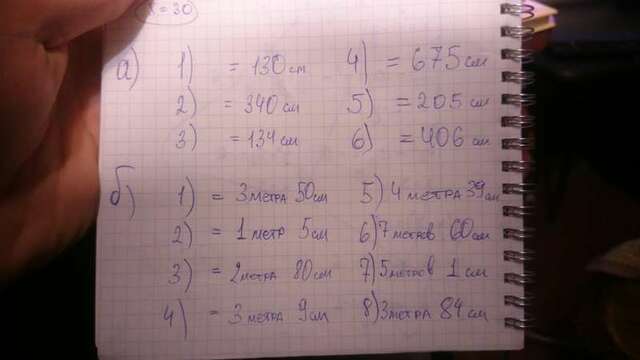 = 30
а) 1) = 130 см 4) = 675 см
2) = 340 см 5) = 205 см
3) = 134 см 6) = 406 см
б) 1) = 3 метра 50 см 5) 4 метра 39 см
2) = 1 метр 5 см 6) 7 метров 60 см
3) = 2 метра 80 см 7) 5 метров 1 см
4) = 3 метра 9 см 8) 3 метра 84 см